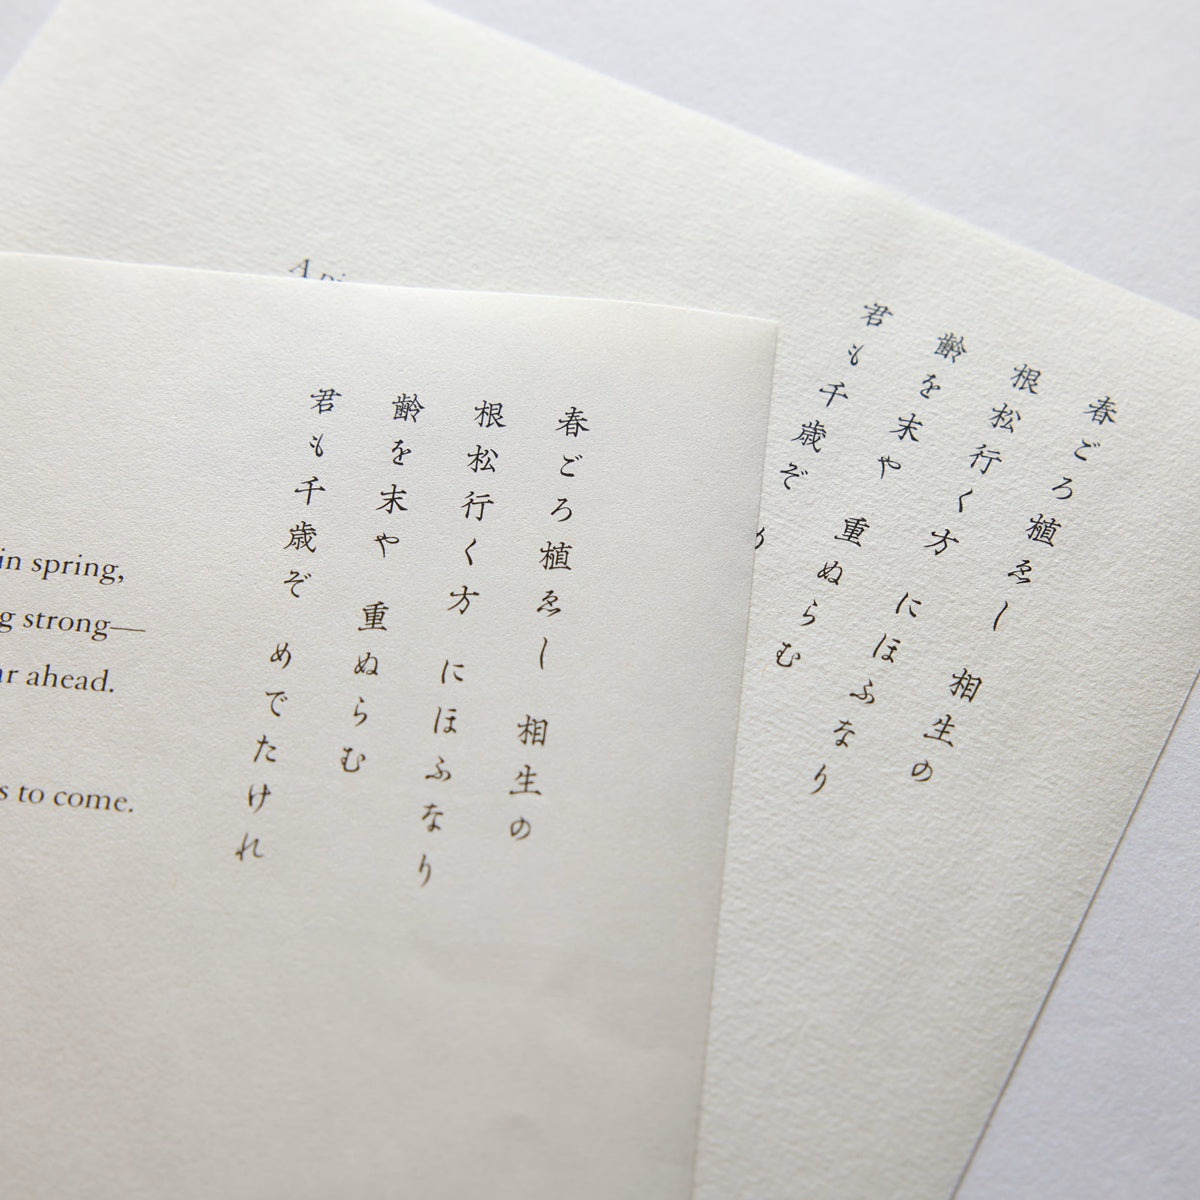 春ごろ植ゑし 相生の
根松行く方 にほふなり
齢を末や 重ぬらむ
君も千歳ぞ めでたけれ
in spring,
strong—
ahead.
to come.
A
春ごろ植ゑし 相生の
根松行く方 にほふなり
齢を末や 重ぬらむ
君も千歳ぞ